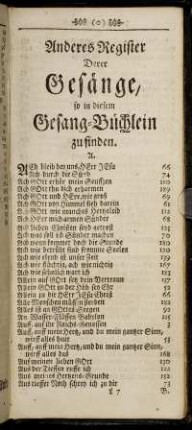 (o)
Anderes Register
Derer
Gesänge,
so in diesem
Gesang-Büchlein
zu finden.
A.
ACh bleib bey uns HErr JEsu 66
Ach durch die 74
Ach GOtt erhör mein Seuffzen 110
Ach GOtt thu dich erbarmen 189
Ach GOtt und HErr, wie groß 69
Ach GOtt vom Himmel sieh darein 61
Ach GOtt wie manches Hertzeleid 112
Ach HErr mich armen Sünder 68
Ach lieben Christen seyd getrost
Ach was soll ich Sünder machen 70
Ach wann kommet doch die Stunde 180
Ach wie betrübt sind fromme Seelen 180
Ach wie elend ist unser Zeit 139
Ach wie flüchtig, ach wie nichtig 167
Ach wie sehnlich wart ich 153
Allein auf GOtt setz dein Vertrauen 137
Allein GOtt in der Höh sey Ehr
Allein zu dir HErr JEsu Christ 65
Alle Menschen müssen sterben
Alles ist an GOttes Seegen 92
An Wasser-Flüssen Babylon 145
Auff, auff ihr Reichs-Genossen 3
Auff, auff mein Hertz, und du mein gantzer Sinn,
wirff alles heut 58
Auff, auff mein Hertz, und du mein gantzer Sinn,
wirff alles das 168
Auf meinen lieben GOtt 130
Aus der Tieffen ruffe ich
Aus meines Hertzens-Grunde 152
Aus tieffer Noth schrey ich zu dir 73
B.